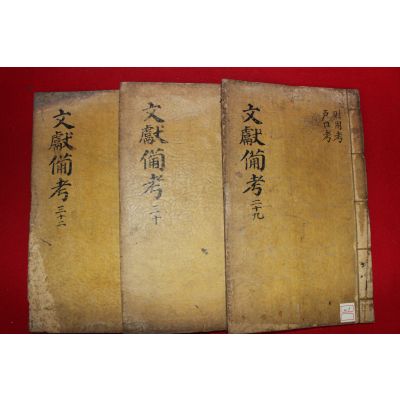 財用考
戶口考
文獻備考
二十九
文獻備考
文獻備考
三十二